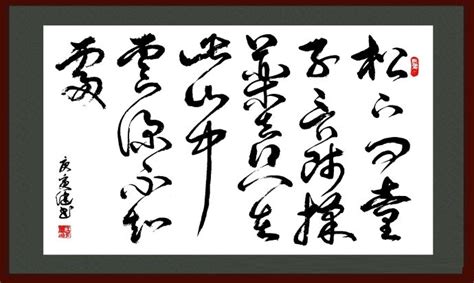 松下问童
子言师採
藥去只在
此山中
雲深不知
處
庚寅